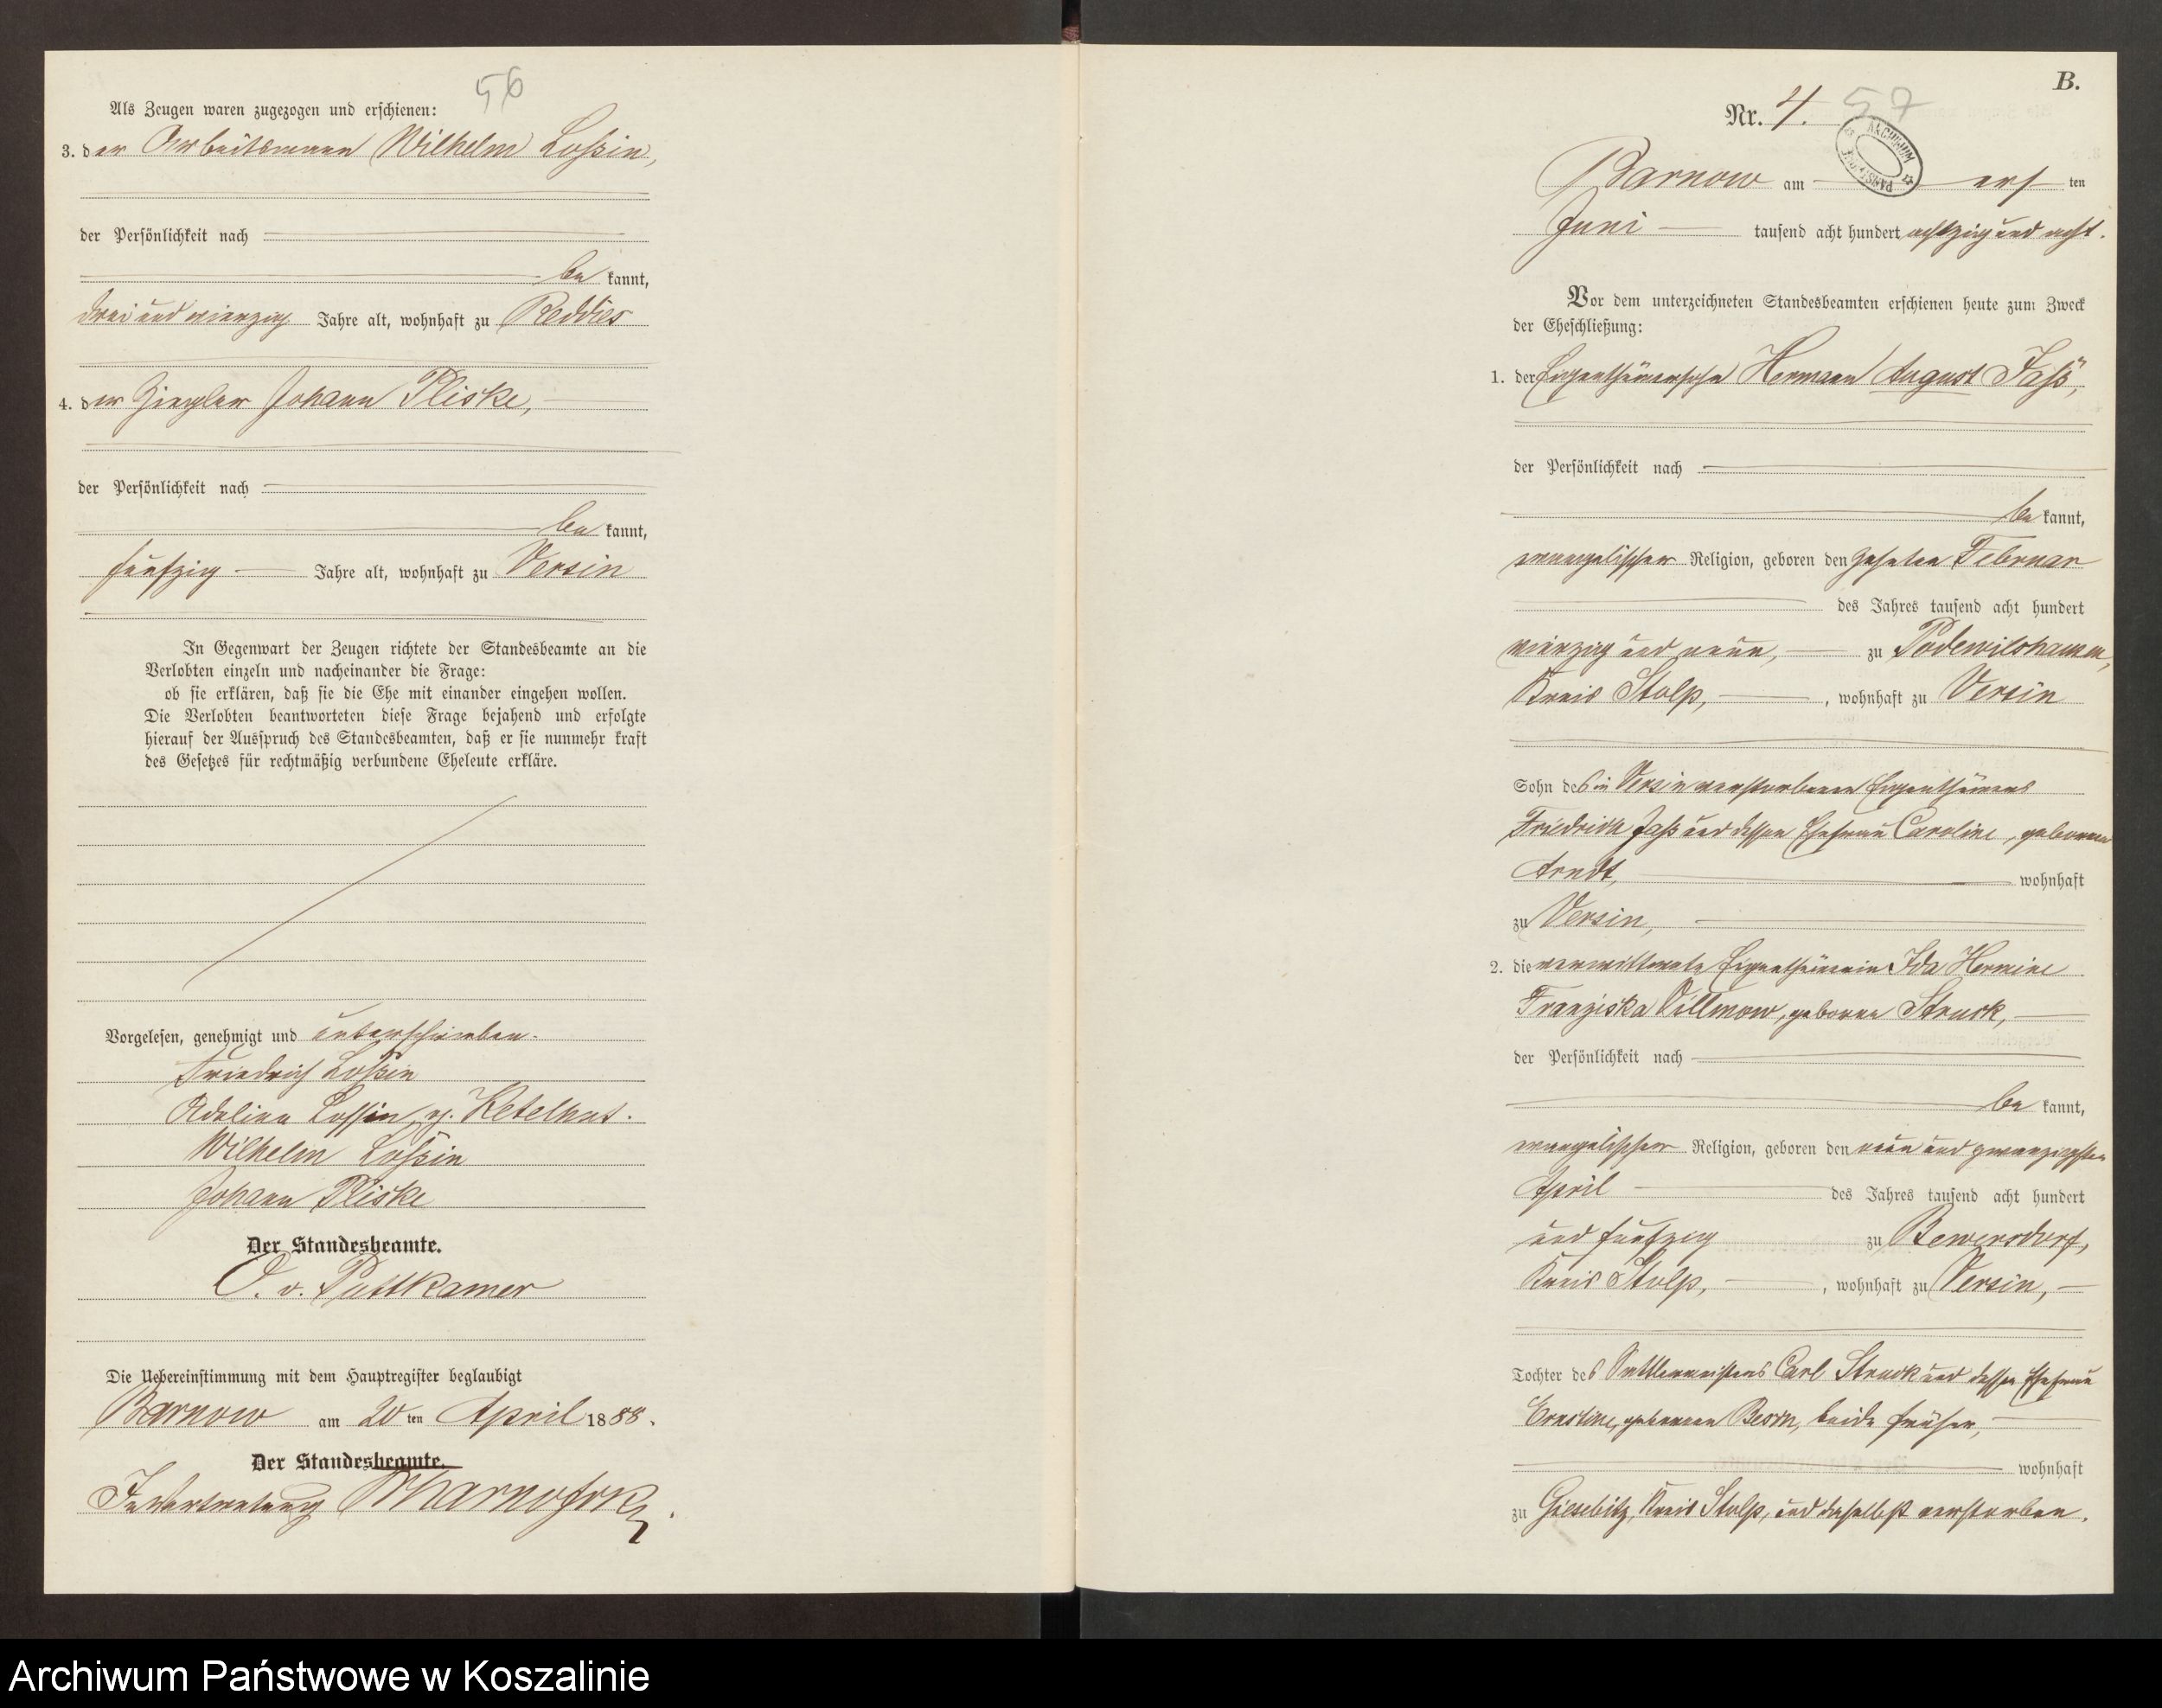 56
Als Zeugen waren zugezogen und erschienen:
3. der Arbeitsmann Wilhelm Loßin,
der Persönlichkeit nach
be kannt,
drei und vierzig Jahre alt, wohnhaft zu Reddies
4. der Ziegler Johann Pliske,
der Persönlichkeit nach
be kannt,
fünfzig Jahre alt, wohnhaft zu Versin
In Gegenwart der Zeugen richtete der Standesbeamte an die
Verlobten einzeln und nacheinander die Frage:
ob sie erklären, daß sie die Ehe mit einander eingehen wollen.
Die Verlobten beantworteten diese Frage bejahend und erfolgte
hierauf der Ausspruch des Standesbeamten, daß er sie nunmehr kraft
des Gesetzes für rechtmäßig verbundene Eheleute erkläre.
Vorgelesen, genehmigt und unterschrieben.
Friedrich Loßin
Adeline Lossin g. Ketelhut.
Wilhelm Loßin
Johann Pliske
Der Standesbeamte.
O. v. Puttkamer
Die Uebereinstimmung mit dem Hauptregister beglaubigt
Barnow am 20 ten April 1888.
Der Standesbeamte.
In Vertretung
B.
Nr. 4. 57
ARCHIWUM
Barnow am ers ten
Juni tausend acht hundert achtzig und acht.
Vor dem unterzeichneten Standesbeamten erschienen heute zum Zweck
der Eheschließung:
1. der Eigenthümersohn Hermann August Jaß,
der Persönlichkeit nach
be kannt,
evangelischer Religion, geboren den zehnten Februar
des Jahres tausend acht hundert
vierzig und neun, zu Podewilshausen,
Kreis Stolp, , wohnhaft zu Versin
Sohn des in Versin verstorbenen Eigenthümers
Friedrich Jaß und dessen Ehefrau Caroline, geborenen
Arndt, wohnhaft
zu Versin,
2. die verwittwete Eigenthümerin Ida Hermine
Franziska Villmow, geborene Struck,
der Persönlichkeit nach
be kannt,
evangelischer Religion, geboren den neun und zwanzigsten
April des Jahres tausend acht hundert
und fünfzig zu Bewersdorf,
Kreis Stolp, , wohnhaft zu Versin,
Tochter des Sattlermeisters Carl Struck und dessen Ehefrau
Ernstine, geborenen Born, beide früher,
wohnhaft
zu Giesebitz, Kreis Stolp, und daselbst verstorben.
Archiwum Państwowe w Koszalinie